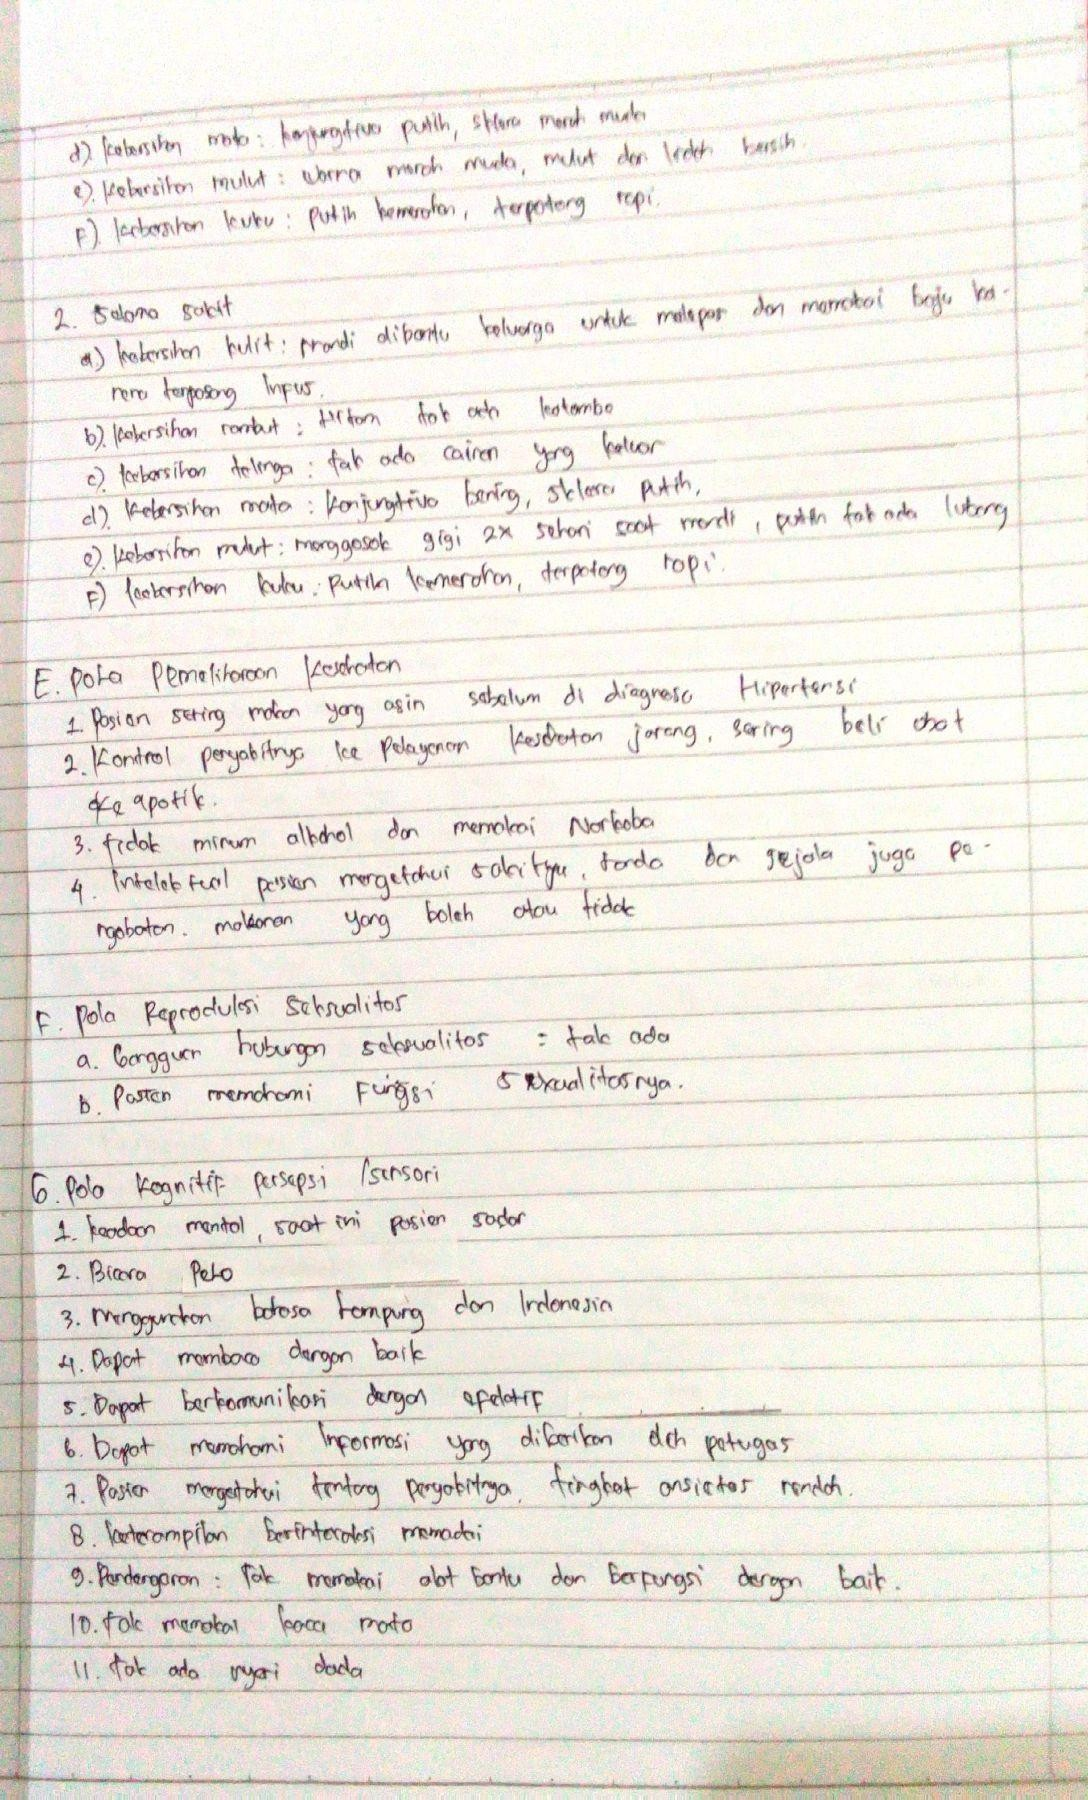 d) kebersihan mata : konjungtiva putih, sklera merah muda
e). kebersihan mulut : warna merah muda, mulut dan lidah bersih.
f). kebersihan kuku : putih kemerahan, terpotong rapi.
2. Selama sakit
a) kebersihan kulit : mandi dibantu keluarga untuk melepas dan memakai baju ka-
rena terpasang infus.
b). kebersihan rambut : hitam tak ada ketombe
c). kebersihan telinga : tak ada cairan yang keluar
d). kebersihan mata : konjungtiva bening, sklera putih,
e). kebersihan mulut : menggosok gigi 2x sehari saat mandi, putih tak ada lubang
f) kebersihan kuku : putih kemerahan, terpotong rapi.
E. Pola Pemeliharaan Kesehatan
1. Pasien sering makan yang asin sebelum di diagnosa Hipertensi
2. Kontrol penyakitnya ke Pelayanan Kesehatan jarang, sering beli obat
ke apotik.
3. tidak minum alkohol dan memakai Narkoba
4. Intelektual pasien mengetahui sakitnya, tanda dan gejala juga pe-
ngobatan. makanan yang boleh atau tidak
F. Pola Reproduksi Seksualitas
a. Gangguan hubungan seksualitas : tak ada
b. Pasien memahami Fungsi Sexualitasnya.
G. Pola Kognitif persepsi /sensori
1. keadaan mental, saat ini pasien sadar
2. Bicara Pelo
3. Menggunakan bahasa Lampung dan Indonesia
4. Dapat membaca dengan baik
5. Dapat berkomunikasi dengan efektif
6. Dapat memahami Informasi yang diberikan oleh petugas
7. Pasien mengetahui tentang penyakitnya, tingkat ansietas rendah.
8. keterampilan berinteraksi memadai
9. Pendengaran : Tak memakai alat bantu dan berfungsi dengan baik.
10. tak memakai kaca mata
11. tak ada nyeri dada